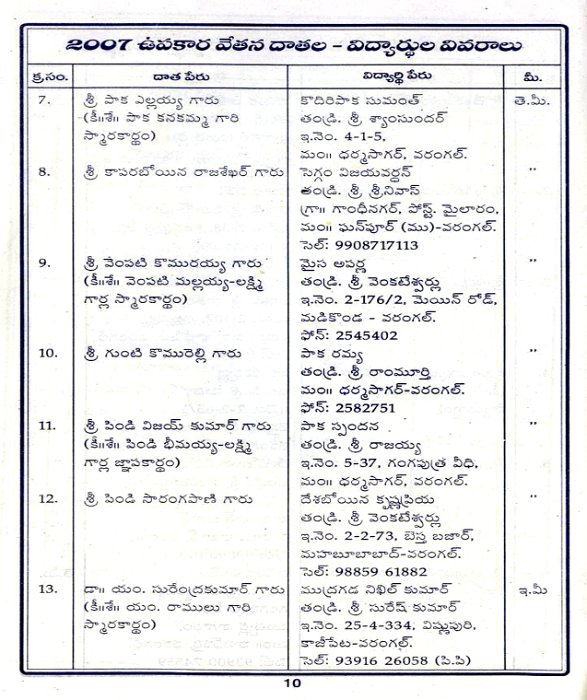 2007 ఉపకార వేతన దాతల - విద్యార్థుల వివరాలు
క్ర.సం. దాత పేరు విద్యార్థి పేరు మీ.
7. శ్రీ పాక ఎల్లయ్య గారు కొదిరిపాక సుమంత్ తె.మీ.
(కీ॥శే॥ పాక కనకమ్మ గారి తండ్రి. శ్రీ శ్యాంసుందర్
స్మారకార్థం) ఇ.నెం. 4-1-5,
మం॥ ధర్మసాగర్, వరంగల్.
8. శ్రీ కాపరబోయిన రాజశేఖర్ గారు సెగ్గం విజయవర్ధన్ "
తండ్రి. శ్రీ శ్రీనివాస్
గ్రా॥ గాంధీనగర్, పోస్ట్. మైలారం,
మం॥ ఘన్‌పూర్ (ము)-వరంగల్.
సెల్: 9908717113
9. శ్రీ వెంపటి కొమురయ్య గారు మైస అపర్ణ "
(కీ॥శే॥ వెంపటి మల్లయ్య-లక్ష్మి తండ్రి. శ్రీ వెంకటేశ్వర్లు
గార్ల స్మారకార్థం) ఇ.నెం. 2-176/2, మెయిన్ రోడ్,
మడికొండ - వరంగల్.
ఫోన్: 2545402
10. శ్రీ గుంటి కొమురెల్లి గారు పాక రమ్య "
తండ్రి. శ్రీ రాంమూర్తి
మం॥ ధర్మసాగర్-వరంగల్.
ఫోన్: 2582751
11. శ్రీ పిండి విజయ్ కుమార్ గారు పాక స్పందన "
(కీ॥శే॥ పిండి భీమయ్య-లక్ష్మి తండ్రి. శ్రీ రాజయ్య
గార్ల జ్ఞాపకార్థం) ఇ.నెం. 5-37, గంగపుత్ర వీధి,
మం॥ ధర్మసాగర్, వరంగల్.
12. శ్రీ పిండి సారంగపాణి గారు దేశబోయిన కృష్ణప్రియ "
తండ్రి. శ్రీ వెంకటేశ్వర్లు
ఇ.నెం. 2-2-73, బెస్త బజార్,
మహబూబాబాద్-వరంగల్.
సెల్: 98859 61882
13. డా॥ యం. సురేంద్రకుమార్ గారు ముద్రగడ నిఖిల్ కుమార్ ఇ.మీ
(కీ॥శే॥ యం. రాములు గారి తండ్రి. శ్రీ సురేష్ కుమార్
స్మారకార్థం) ఇ.నెం. 25-4-334, విష్ణుపురి,
కాజీపేట-వరంగల్.
సెల్: 93916 26058 (పి.పి)
10